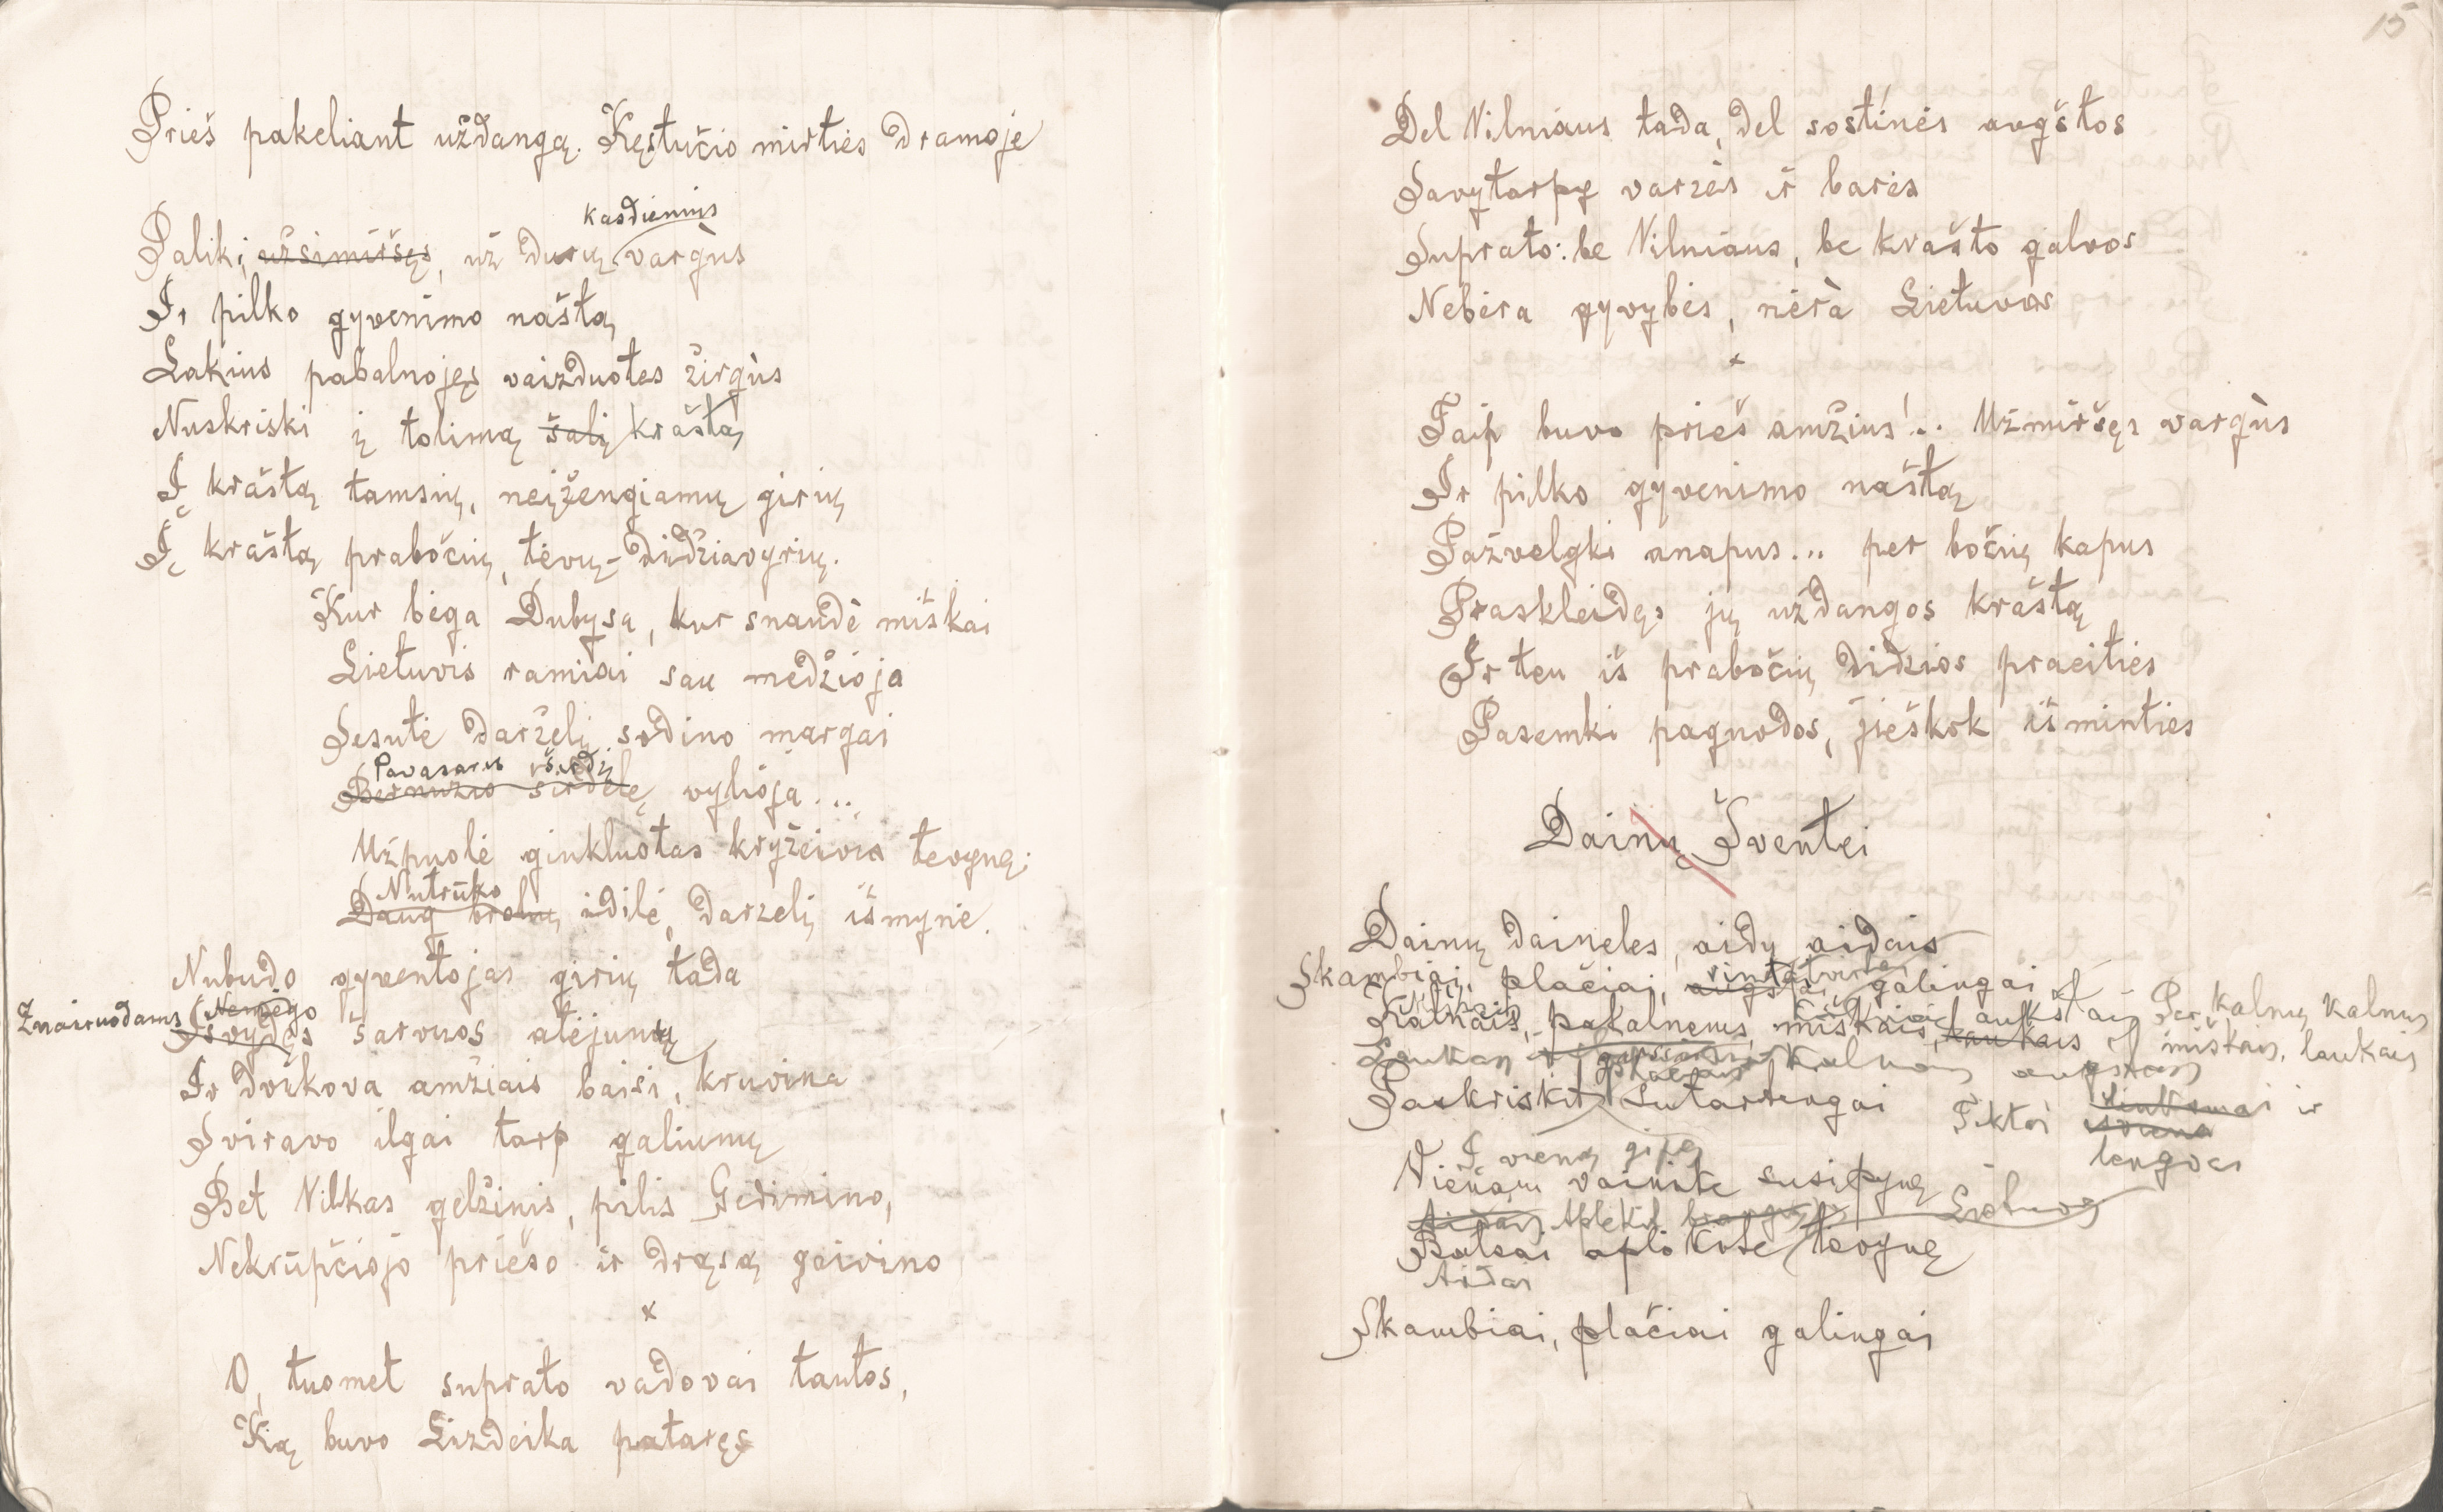 Prieš pakeliant uždangą. Kęstučio mirties dramoje
kasdienius
Paliki, užsimiršęs, už durų vargùs
Ir pilko gyvenimo naštą
Lakius pabalnojęs vaizduotes žirgùs
Nuskriski į tolimą šalį kraštą
Į kraštą tamsių, neįžengiamų girių
Į kraštą prabočių, tėvų-didžiavyrių.
Kur bėga Dubysa, kur snaudė miškai
Lietuvis ramiai sau medžioja
Sesutė darželį sodino margai
Pavasaris širdį
Bernužio širdelę vylioja...
Užpuolė ginkluotas kryžeivis tevynę;
Nutrūko
Daug brolių idilė, darzelį išmynė.
Nubudo gyventojas girių tada
Žnairuodams Nemiego
Išvydęs šarvuos atėjunų
Ir dvikova amžiais baisi, kruvina
Sviravo ilgai tarp galiunų
Bet Vilkas gelžinis, pilis Gedimino,
Nekrūpčiojo priešo ir drąsą gaivino
x
O, tuomet suprato vadovai tautos,
Ką buvo Lizdeika pataręs
15
Del Vilniaus tada, del sostínės augštos
Savytarpy varzės ir barės
Suprato: be Vilniaus, be krašto galvos
Nebėra gyvybės, nėrà Lietuvos
x
Taip buvo prieš amžius!.. Užmiršęs vargùs
Ir pilko gyvenimo naštą
Pažvelgki anapus... per bočių kapus
Praskleidęs jų uždangos kraštą
Ir ten iš prabočių didzios praeities
Pasemki paguodos, jieškok išminties
Dainų Šventei
Dainų daineles, aidų aidais
Skambiai, plačiai, galingai
Per kalnų kalnus
Kalnais, pakalnemis, miškais, laukais
miškais, laukais
Laukan
Paskriskit sutartingai
Tiktai linksmai ir
lengvai
Į vieną giją
Vienam vainike susipynę
Aidais Aplėkit Lietuvą
Balsai aplėkite tėvynę
Aidai
Skambiai, plačiai galingai